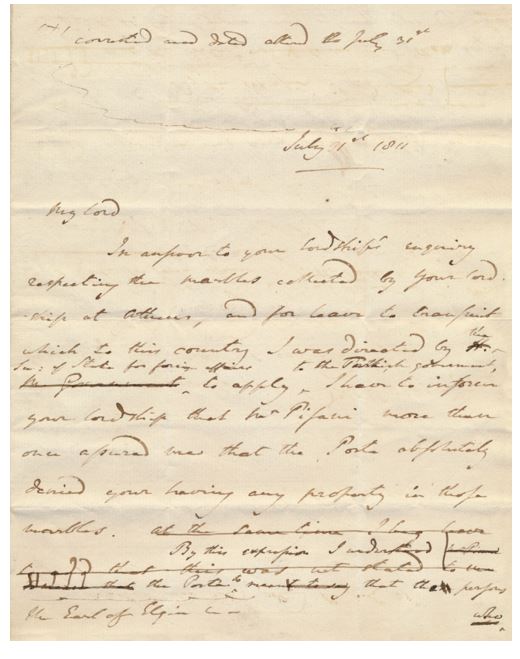 corrected and dated altered to July 31st
July 31st 1811
My Lord
In answer to your lordship's enquiry
respecting the marbles collected by your Lord-
-ship at Athens, and for leave to transmit
which to this country I was directed by the
Sec: of State for foreign affairs to the Turkish government,
to apply, I have to inform
your lordship that Mr Pisani more than
once assured me that the Porte absolutely
denied your having any property in those
marbles. at the same time I beg leave
By this expression I understand
that this was not stated to me
that the Porte to say that the persons
the Earl of Elgin
who